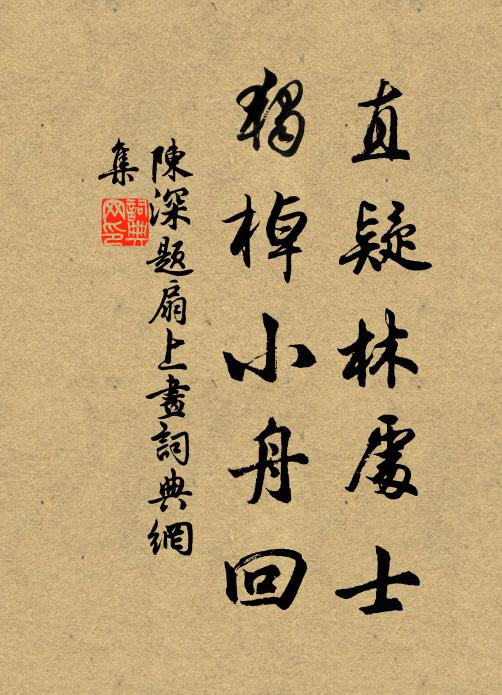 直疑林處士
獨棹小舟回
陳深題扇上畫詞典網
集
詞典
网印